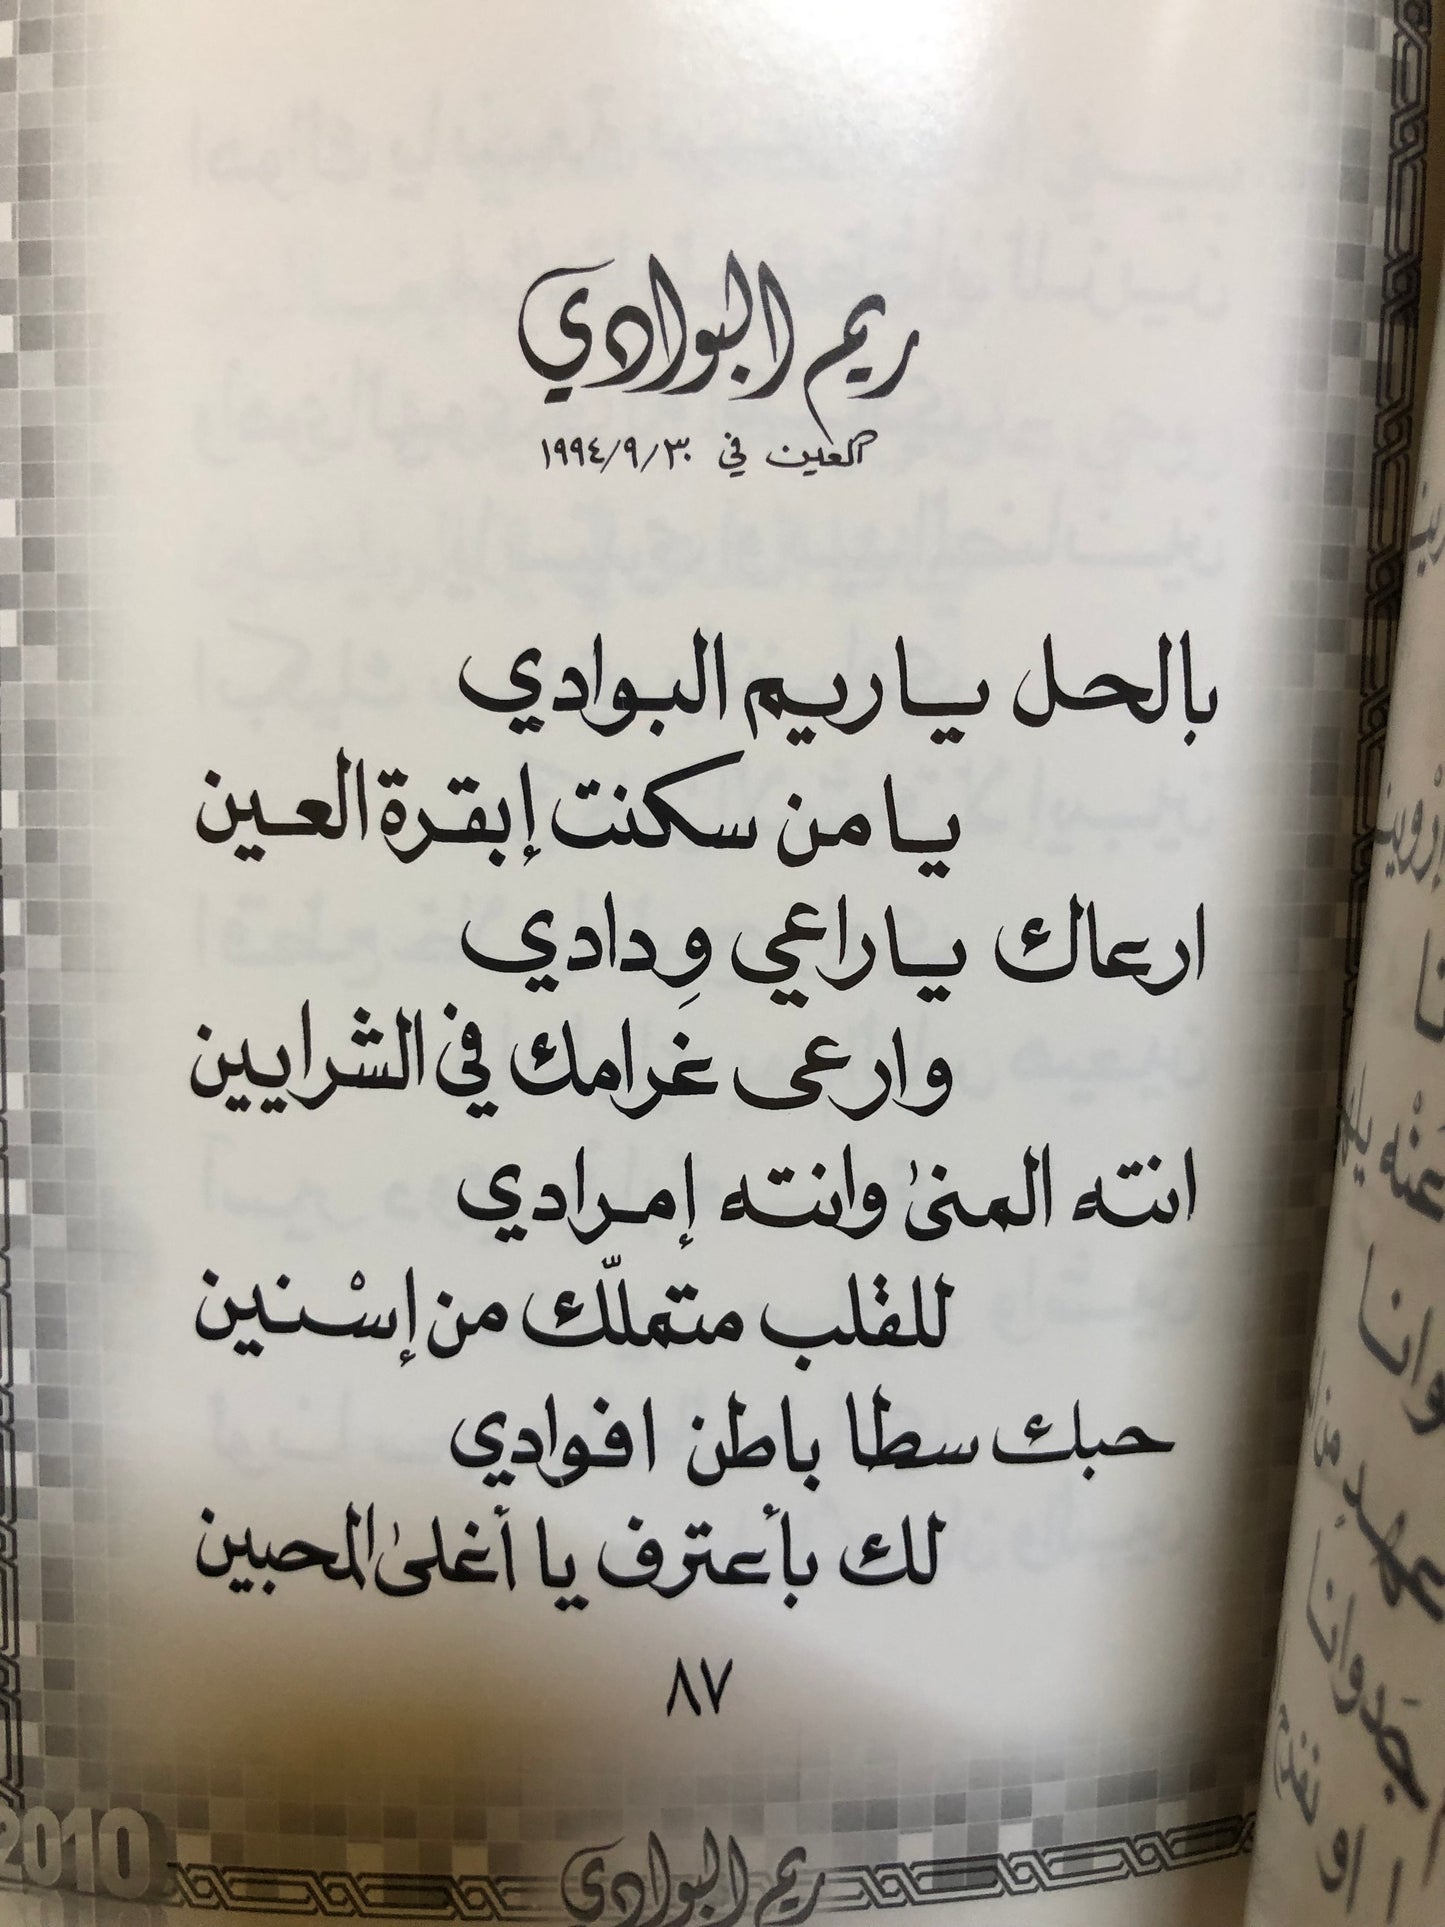 ريم البوادي
العين في ١٩٩٤/٩/٣٠
بالحل يا ريم البوادي
يا من سكنت إبقرة العين
ارعاك يا راعي وِدادي
وارعى غرامك في الشرايين
انته المنىٰ وانته إمرادي
للقلب متملّك من إسْنين
حبك سطا باطن افوادي
لك بأعترف يا أغلىٰ المحبين
٨٧
2010
ريم البوادي